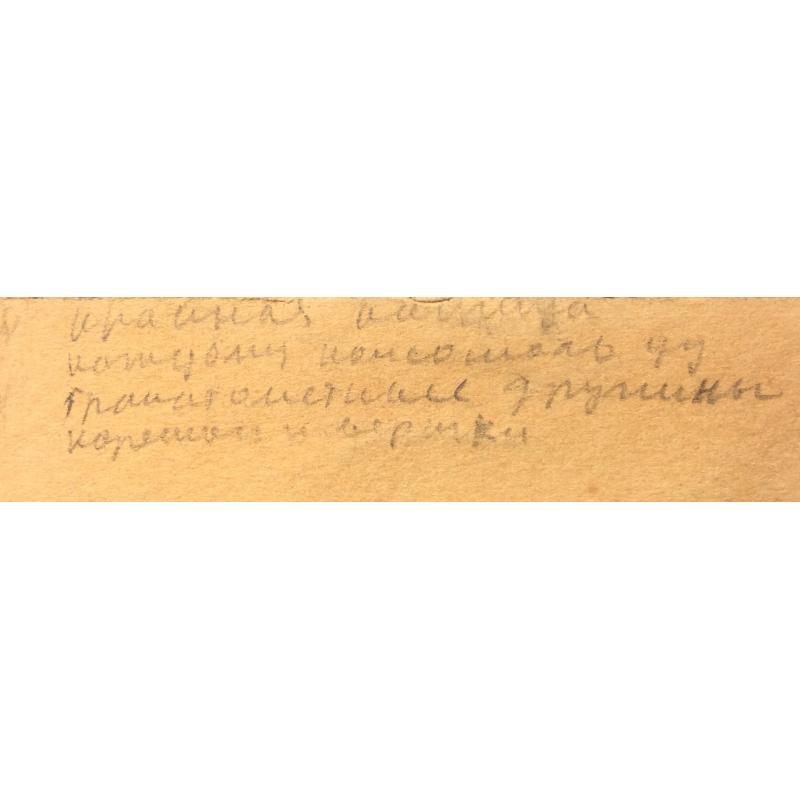 крайная
каждому комсомоль цу
гранатометные дружины
корешки и вершки